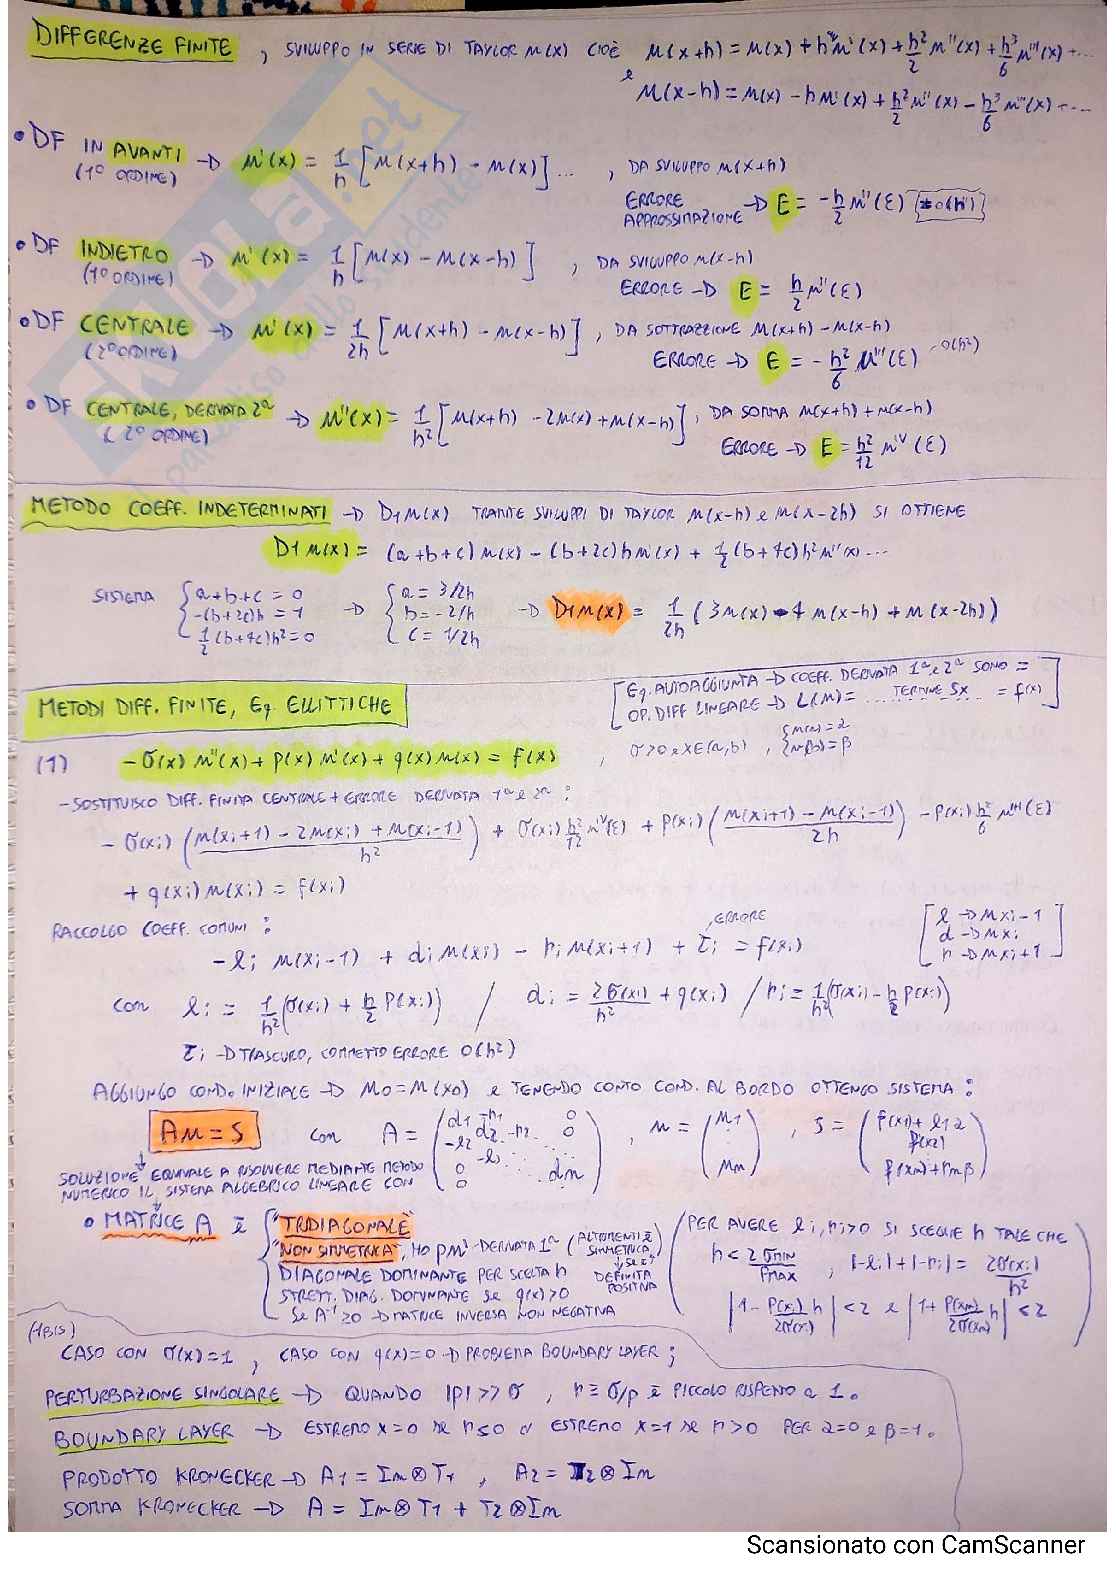 DIFFERENZE FINITE, SVILUPPO IN SERIE DI TAYLOR u(x) CIOÈ u(x+h) = u(x) + hu'(x) + h²/2 u''(x) + h³/6 u'''(x) + ...
e u(x-h) = u(x) - hu'(x) + h²/2 u''(x) - h³/6 u'''(x) + ...
• DF IN AVANTI → u'(x) = 1/h [u(x+h) - u(x)] ... , DA SVILUPPO u(x+h)
(1° ORDINE)
ERRORE APPROSSIMAZIONE → E = -h/2 u''(ε)
• DF INDIETRO → u'(x) = 1/h [u(x) - u(x-h)] , DA SVILUPPO u(x-h)
(1° ORDINE) ERRORE → E = h/2 u''(ε)
• DF CENTRALE → u'(x) = 1/2h [u(x+h) - u(x-h)] , DA SOTTRAZIONE u(x+h) - u(x-h)
(2° ORDINE) ERRORE → E = -h²/6 u'''(ε) O(h²)
• DF CENTRALE, DERIVATA 2ª → u''(x) = 1/h² [u(x+h) - 2u(x) + u(x-h)] , DA SOMMA u(x+h) + u(x-h)
(2° ORDINE) ERRORE → E = h²/12 u^IV(ε)
METODO COEFF. INDETERMINATI → D1u(x) TRAMITE SVILUPPI DI TAYLOR u(x-h) e u(x-2h) SI OTTIENE
D1u(x) = (a+b+c)u(x) - (b+2c)hu'(x) + 1/2(b+4c)h²u''(x) ...
SISTEMA { a+b+c = 0 → { a = 3/2h → D1u(x) = 1/2h (3u(x) - 4u(x-h) + u(x-2h))
-(b+2c)h = 1 b = -2/h
1/2(b+4c)h² = 0 c = 1/2h
METODI DIFF. FINITE, Eq. ELLITTICHE
[Eq. AUTOAGGIUNTA → COEFF. DERIVATA 1ª e 2ª SONO =
OP. DIFF LINEARE → L(u) = ... TERMINE SX ... = f(x)]
(1) -σ(x)u''(x) + p(x)u'(x) + q(x)u(x) = f(x) , σ>0 e x∈(a,b) , { u(a) = α
u(b) = β
- SOSTITUISCO DIFF. FINITA CENTRALE + ERRORE DERIVATA 1ª e 2ª :
-σ(xi) ((u(xi+1) - 2u(xi) + u(xi-1))/h²) + σ(xi) h²/12 u^IV(ε) + p(xi) ((u(xi+1) - u(xi-1))/2h) - p(xi) h²/6 u'''(ε)
+ q(xi)u(xi) = f(xi)
RACCOLGO COEFF. COMUNI :
-li u(xi-1) + di u(xi) - ri u(xi+1) + τi = f(xi)
, ERRORE
[l → uxi-1
d → uxi
r → uxi+1]
CON li = 1/h² (σ(xi) + h/2 p(xi)) / di = 2σ(xi)/h² + q(xi) / ri = 1/h² (σ(xi) - h/2 p(xi))
τi → TRASCURO, COMMETTO ERRORE O(h²)
AGGIUNGO COND. INIZIALE → u0 = u(x0) e TENENDO CONTO COND. AL BORDO OTTENGO SISTEMA :
Au = S CON A = (d1 -r1 0
-l2 d2 -r2 ... 0
0 -l3 ...
0 dm) , u = (u1
⋮
um) , S = (f(x1) + l1α
f(x2)
f(xm) + rmβ)
SOLUZIONE EQUIVALE A RISOLVERE MEDIANTE METODO
NUMERICO IL SISTEMA ALGEBRICO LINEARE CON
• MATRICE A È { "TRIDIAGONALE"
"NON SIMMETRICA", HO p u' DERIVATA 1ª (ALTRIMENTI È SIMMETRICA, ↓ SE È DEFINITA POSITIVA)
DIAGONALE DOMINANTE PER SCELTA h
STRETT. DIAG. DOMINANTE SE q(x)>0
SE A⁻¹≥0 → MATRICE INVERSA NON NEGATIVA
(PER AVERE li, ri>0 SI SCEGLIE h TALE CHE
h < 2σmin/Pmax , |-li| + |-ri| = 2σ(xi)/h²
|1 - P(xi)/2σ(xi) h| < 2 e |1 + P(xm)/2σ(xm) h| < 2)
(1BIS)
CASO CON σ(x)=1 , CASO CON q(x)=0 → PROBLEMA BOUNDARY LAYER ;
PERTURBAZIONE SINGOLARE → QUANDO |p| >> σ , r ≡ σ/p È PICCOLO RISPETTO a 1.
BOUNDARY LAYER → ESTREMO x=0 SE r≤0 o ESTREMO x=1 SE r>0 PER α=0 e β=1.
PRODOTTO KRONECKER → A1 = Im⊗T1 , A2 = T2⊗Im
SOMMA KRONECKER → A = Im⊗T1 + T2⊗Im
SKUOLA.net
il paradiso dello studente
Scansionato con CamScanner